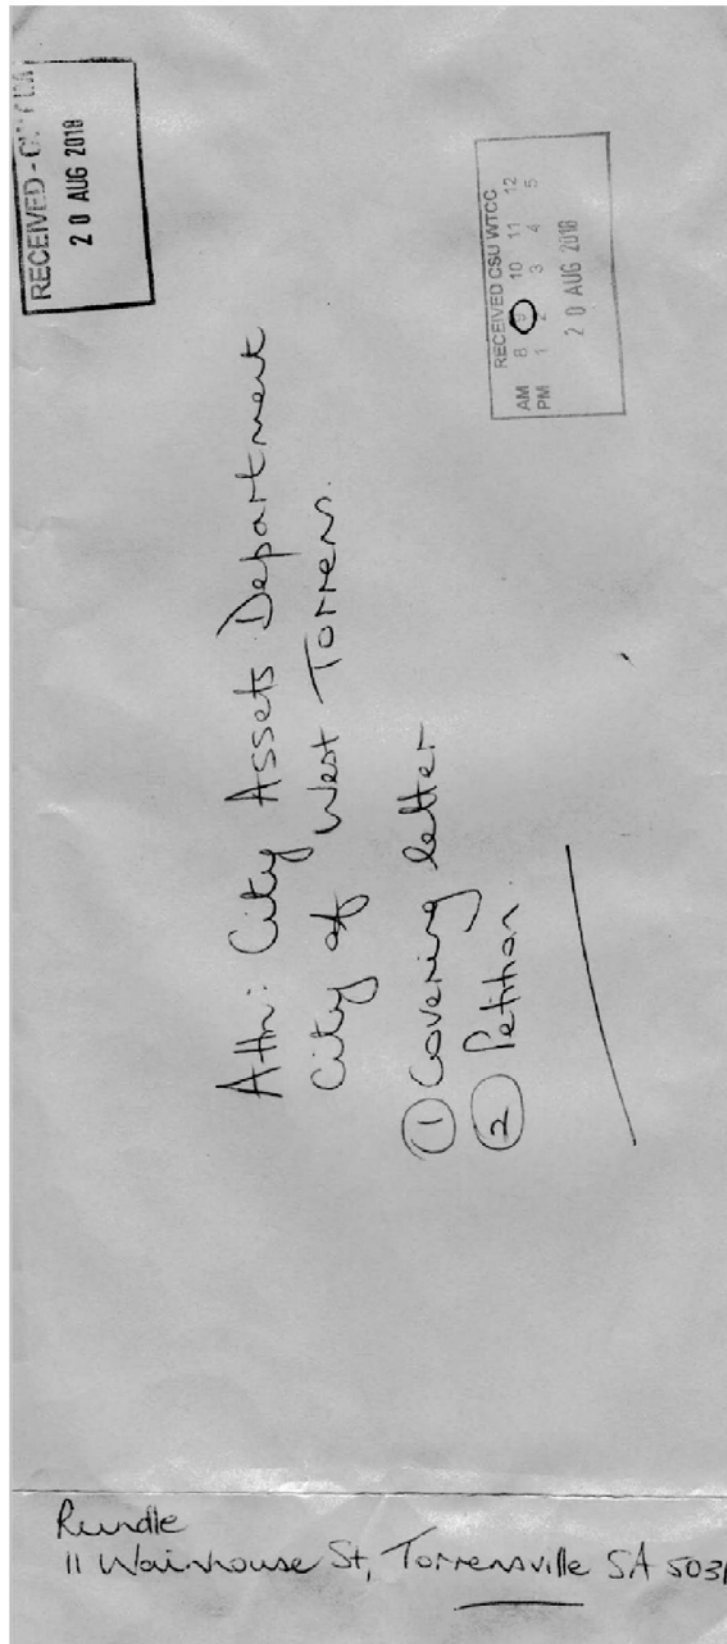 RECEIVED -
20 AUG 2018
RECEIVED CSU WTCC
AM 8 9 10 11 12
PM 1 2 3 4 5
20 AUG 2018
Attn: City Assets Department
City of West Torrens.
1 Covering letter
2 Petition.
Rundle
11 Wainhouse St, Torrensville SA 5031